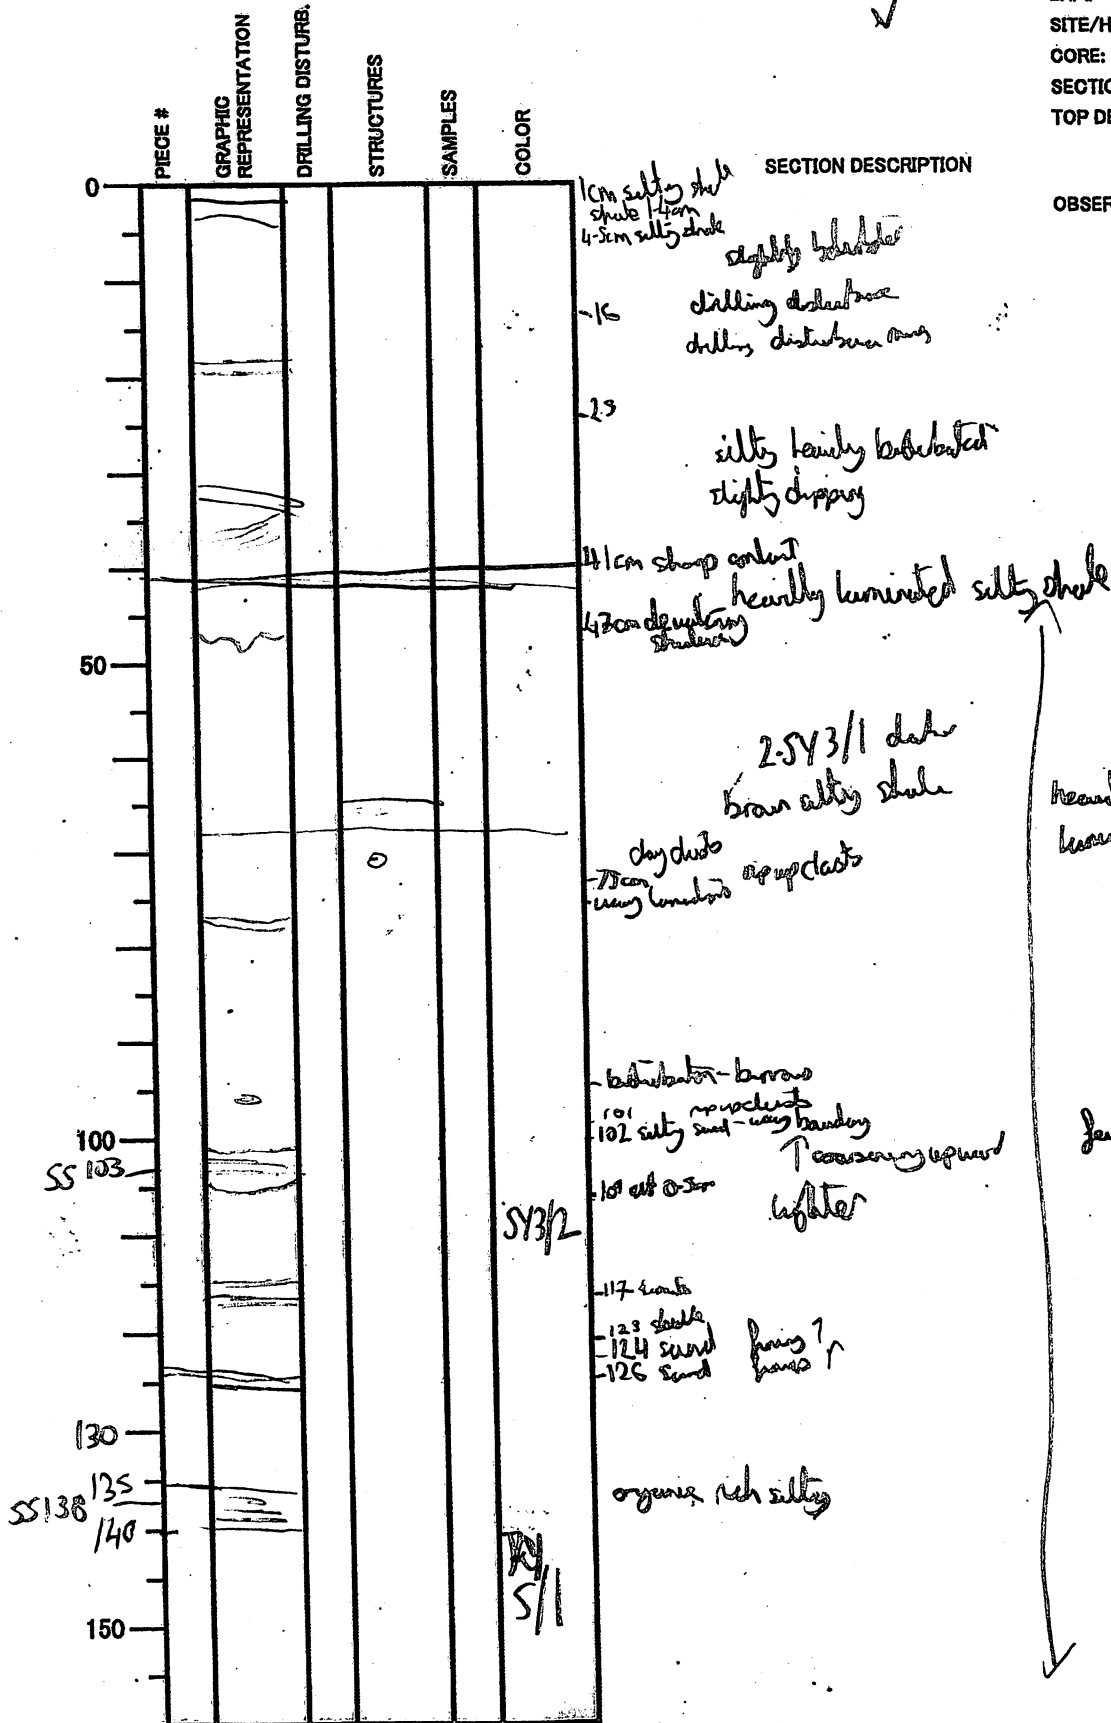 SITE/H
CORE:
SECTIO
TOP DE
OBSER
PIECE #
GRAPHIC REPRESENTATION
DRILLING DISTURB.
STRUCTURES
SAMPLES
COLOR
SECTION DESCRIPTION
0
1cm silty shale
shale 1-4cm
4-5cm silty shale
slightly
-16 drilling disturbance
drilling disturbance rings
silty heavily bioturbated
slightly dipping
41cm sharp contact
heavily laminated silty shale
47cm dewatering
structures
50
2.5Y 3/1 dark
brown silty shale
clay clasts
rip up clasts
wavy laminations
- bioturbation - burrows
101 rip up clasts
100
102 silty sand - wavy boundary
↑ coarsening upward
SS 103
lighter
5Y3/2
-117
-123
-124 sand fining ↑
-126 sand fining ↑
130
135
SS138
organic rich silty
140
5/1
150